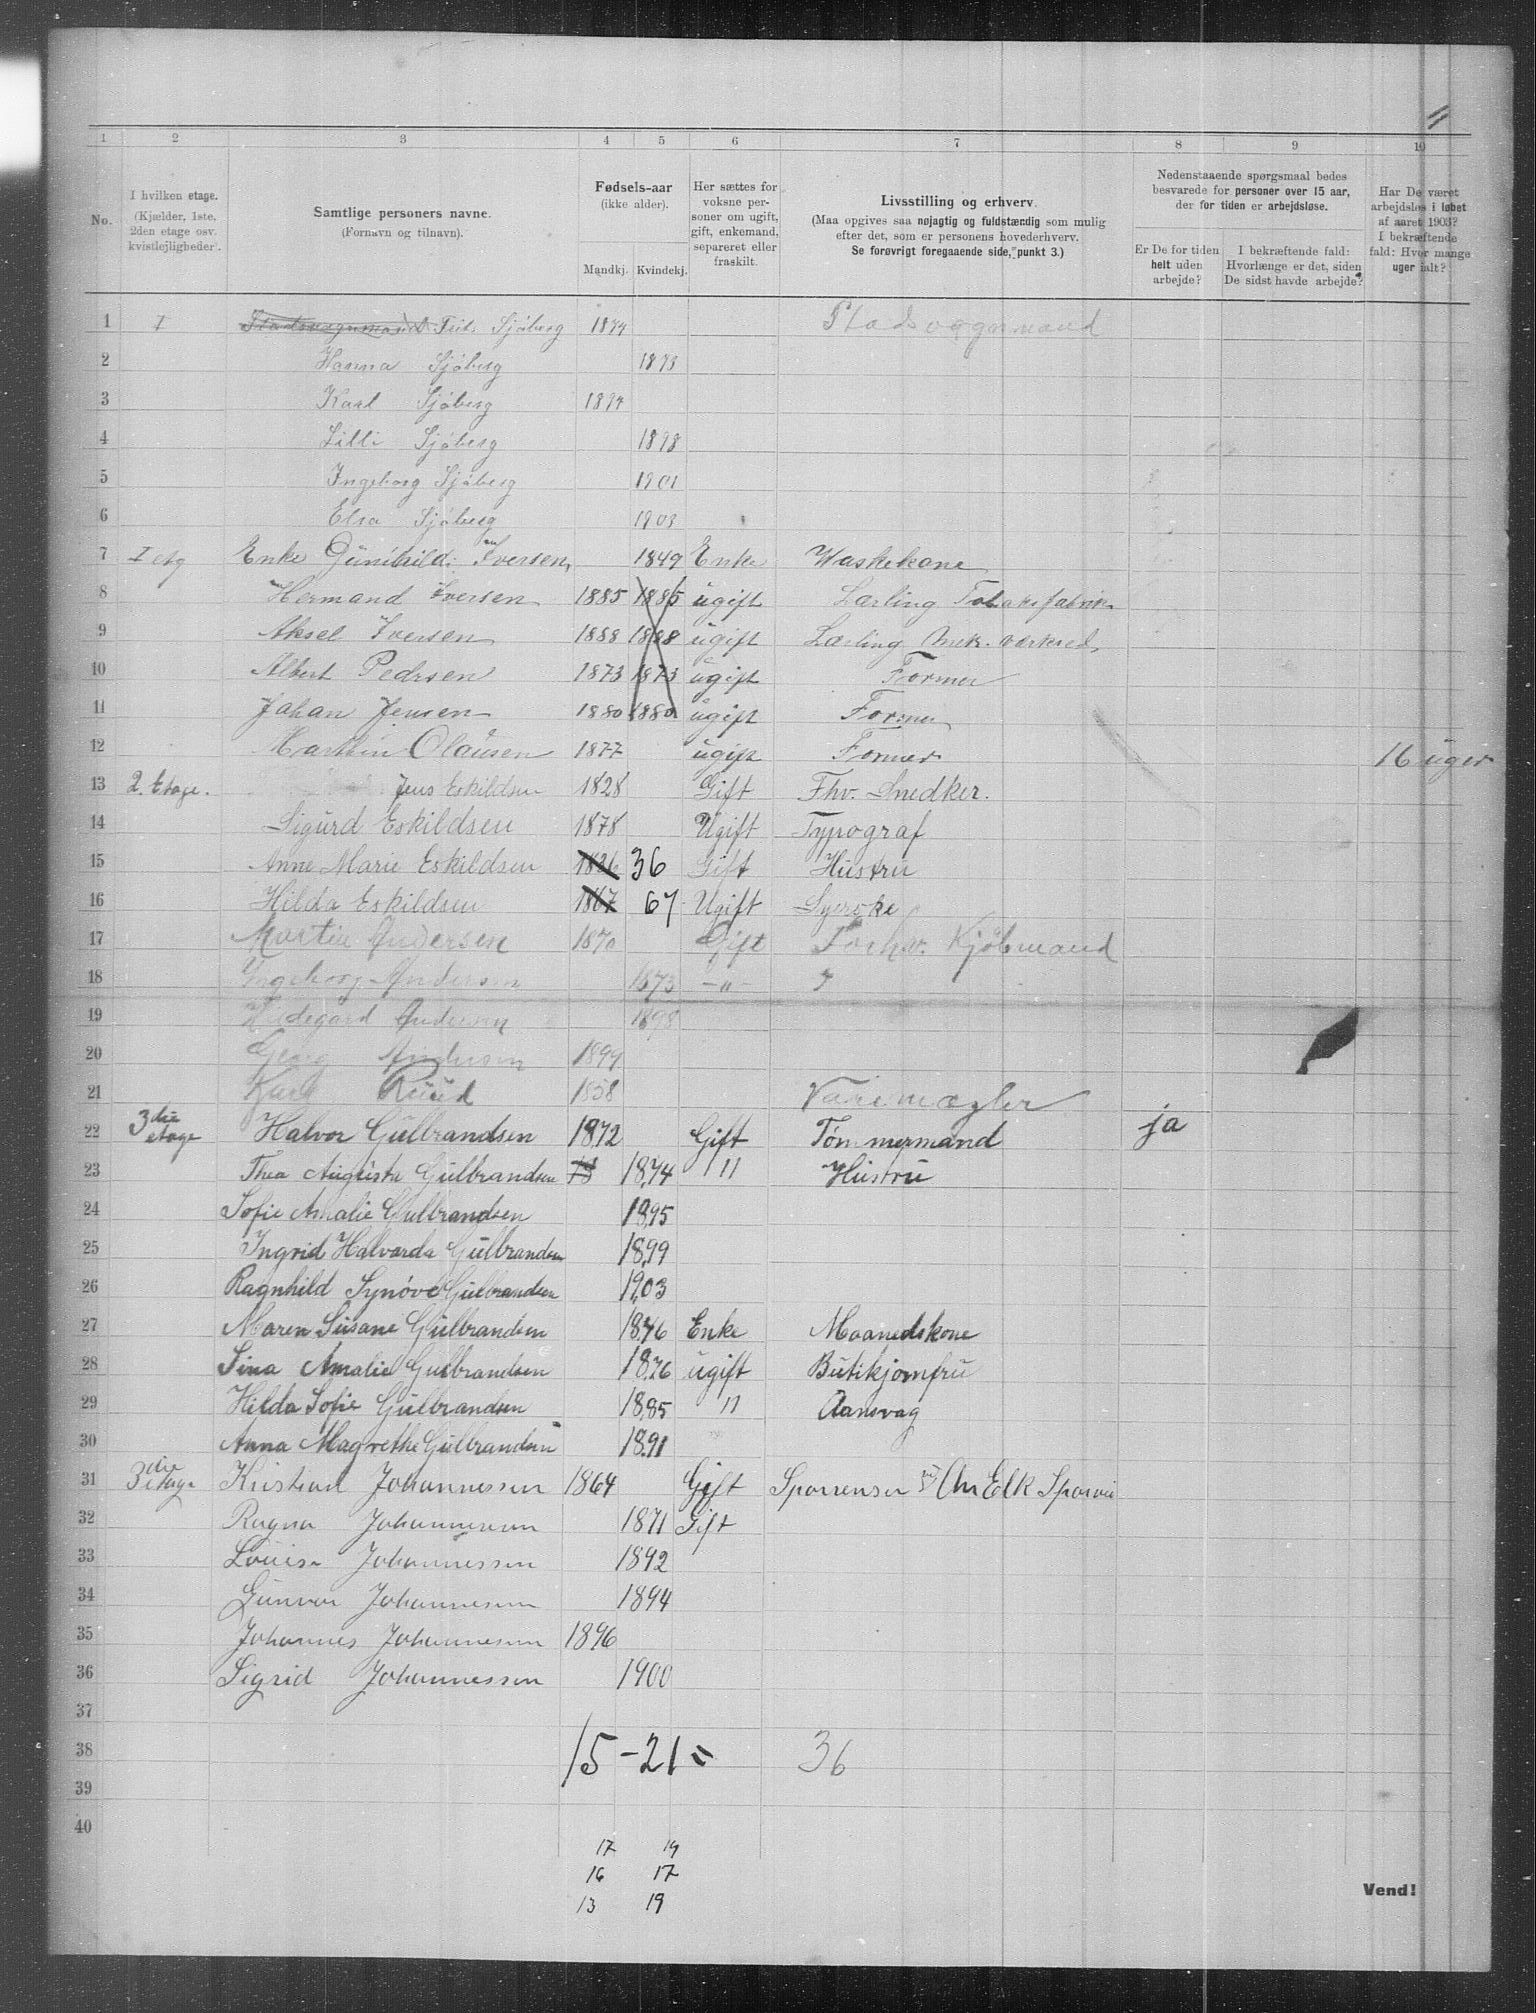 1 2 3 4 5 6 7 8 9 10
No.
I hvilken etage. (Kjælder, 1ste, 2den etage osv. kvistlejligheder).
Samtlige personers navne. (Fornavn og tilnavn).
Fødsels-aar (ikke alder). Mandkj. Kvindekj.
Her sættes for voksne personer om ugift, gift, enkemand, separeret eller fraskilt.
Livsstilling og erhverv. (Maa opgives saa nøjagtig og fuldstændig som mulig efter det, som er personens hovederhverv. Se forøvrigt foregaaende side, punkt 3.)
Nedenstaaende spørgsmaal bedes besvarede for personer over 15 aar, der for tiden er arbejdsløse.
Er De for tiden helt uden arbejde?
I bekræftende fald: Hvorlænge er det, siden De sidst havde arbejde?
Har De været arbejdsløs i løbet af aaret 1903? I bekræftende fald: Hvor mange uger ialt?
1 I Sjøberg Stadsvognmand
2 Hanna Sjøberg 1873
3 Karl Sjøberg 1894
4 Lilli Sjøberg 1898
5 Ingeborg Sjøberg 1901
6 Elsa Sjøberg 1903
7 I etg Enke Iversen 1849 Enke Waskekone
8 Hermand Iversen 1885 1885 ugift Lærling Tobaksfabrik
9 Aksel Iversen 1888 1888 ugift Lærling mek. værksted
10 Albert Pedrsen 1873 1873 ugift Former
11 Johan Jensen 1880 1880 ugift Former
12 Martin Olausen 1877 ugift Former 16 uger
13 2. Etage. Jens Eskildsen 1828 Gift Fhv. Snedker.
14 Sigurd Eskildsen 1878 Ugift Typograf
15 Anne Marie Eskildsen 1836 36 Gift Hustru
16 Hilda Eskildsen 1867 67 Ugift Syerske
17 Martin Andersen 1870 Gift Forhv. Kjøbmand
18 Ingeborg Andersen 1873 -"-
19 Andersen 1898
20 Georg Andersen 1899
21 Karl Ruud 1858 Varemægler
22 3die etage Halvor Gulbrandsen 1872 Gift Tømmermand ja
23 Thea Augusta Gulbrandsen 1874 " Hustru
24 Sofie Amalie Gulbrandsen 1895
25 Ingrid Halvarda Gulbrandsen 1899
26 Ragnhild Synøve Gulbrandsen 1903
27 Maren Susane Gulbrandsen 1846 Enke Maanedskone
28 Sina Amalie Gulbrandsen 1876 ugift Butikjomfru
29 Hilda Sofie Gulbrandsen 1885 "
30 Anna Magrethe Gulbrandsen 1891
31 3die etage Kristian Johannessen 1864 Gift
32 Ragna Johannessen 1871 Gift
33 Louise Johannessen 1892
34 Gunvor Johannessen 1894
35 Johannes Johannessen 1896
36 Sigrid Johannessen 1900
37
38 15 - 21 = 36
39
40
17 19
16 17
13 19
Vend!